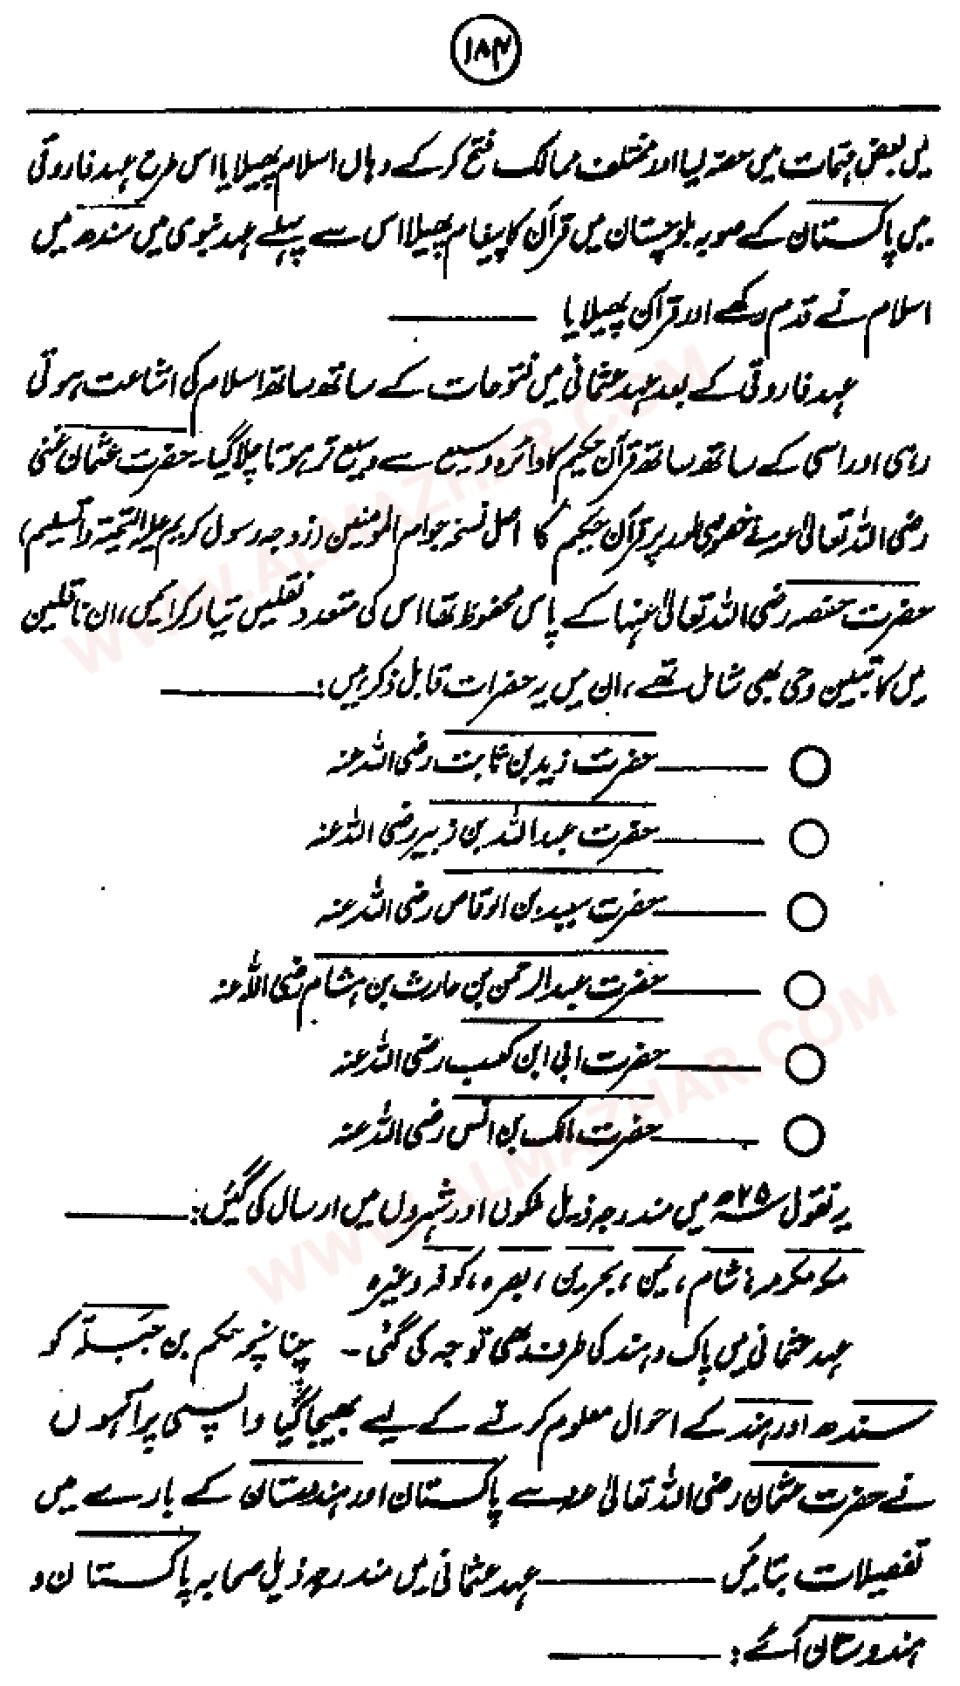 ۱۸۴
میں بعض مہمات میں حصہ لیا اور مختلف ممالک فتح کر کے وہاں اسلام پھیلایا اس طرح عہد فاروقی
میں پاکستان کے صوبہ بلوچستان میں قرآن کا پیغام پھیلا اس سے پہلے عہد نبوی میں سندھ میں
اسلام نے قدم رکھے اور قرآن پھیلایا ———
عہد فاروقی کے بعد عہد عثمانی میں فتوحات کے ساتھ ساتھ اسلام کی اشاعت ہوتی
رہی اور اسی کے ساتھ ساتھ قرآن حکیم کا دائرہ وسیع سے وسیع تر ہوتا چلا گیا۔ حضرت عثمان غنی
رضی اللہ تعالیٰ عنہ نے خصوصی طور پر قرآن حکیم کا اصل نسخہ جو ام المومنین (زوجہ رسول کریم علیہ التحیۃ والتسلیم)
حضرت حفصہ رضی اللہ تعالیٰ عنہا کے پاس محفوظ تھا اس کی متعدد نقلیں تیار کرائیں، ان ناقلین
میں کاتبین وحی بھی شامل تھے، ان میں یہ حضرات قابل ذکر ہیں: ———
○ ——— حضرت زید بن ثابت رضی اللہ عنہ
○ ——— حضرت عبد اللہ بن زبیر رضی اللہ عنہ
○ ——— حضرت سعید بن الوقاص رضی اللہ عنہ
○ ——— حضرت عبدالرحمن بن حارث بن ہشام رضی اللہ عنہ
○ ——— حضرت ابی ابن کعب رضی اللہ عنہ
○ ——— حضرت مالک بن انس رضی اللہ عنہ
یہ نقول ۲۵ھ میں مندرجہ ذیل ملکوں اور شہروں میں ارسال کی گئیں: ———
مکہ مکرمہ، شام، یمن، بحرین، بصرہ، کوفہ وغیرہ
عہد عثمانی میں پاک و ہند کی طرف بھی توجہ کی گئی۔ چنانچہ حکم بن جبلۃ کو
سندھ اور ہند کے احوال معلوم کرنے کے لیے بھیجا گیا واپسی پر انہوں
نے حضرت عثمان رضی اللہ تعالیٰ عنہ سے پاکستان اور ہندوستان کے بارے میں
تفصیلات بتائیں ——— عہد عثمانی میں مندرجہ ذیل صحابہ پاکستان و
ہندوستان آئے: ———
WWW.ALMAZHAR.COM
WWW.ALMAZHAR.COM